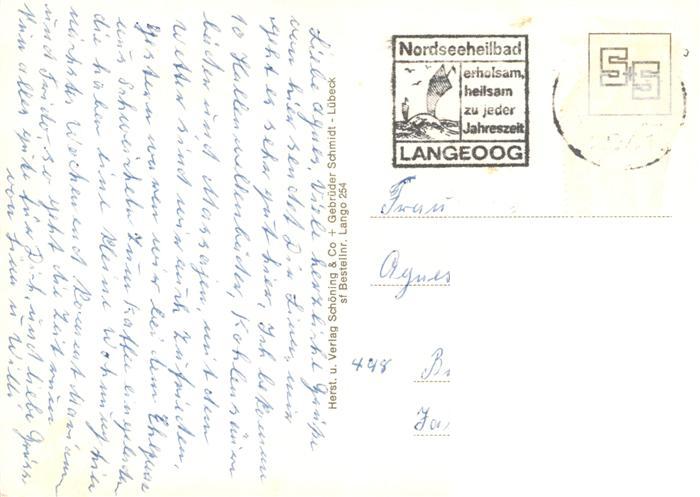 Liebe Agnes, Viele herzliche Grüße
von hier sendet Dir Lina, mir
geht es sehr gut hier, Ich bekomme
10 Hallenwellenbäder, Kohlensäure
bäder und Massagen, mit dem
Wetter sind wir auch zufrieden,
Gestern waren wir bei dem Ehepaar
aus Schwerheim zum Kaffee eingeladen
die haben eine kleine Wohnung hier
nächste Wochenend kommt
und Frido, so geht die Zeit rum
Nun alles gute für Dich, und liebe Grüße
von Lina u Willi
Herst. u. Verlag Schöning & Co + Gebrüder Schmidt - Lübeck
sf Bestellnr. Lango 254
Nordseeheilbad
erholsam,
heilsam
zu jeder
Jahreszeit
LANGEOOG
S+S
Frau
Agnes
448